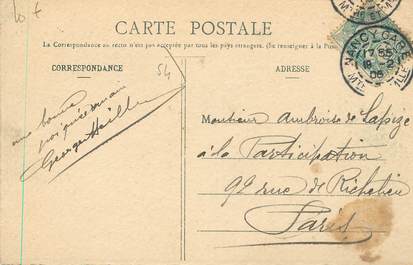 10 F
CARTE POSTALE
La Correspondance au recto n'est pas acceptée par tous les pays étrangers. (Se renseigner à la Poste
CORRESPONDANCE
ADRESSE
54
NANCY GARE
17 55
18-2
06
une bonne
Georges
Monsieur Ambroise de Lapize
à la Participation
92 rue de Richelieu
Paris